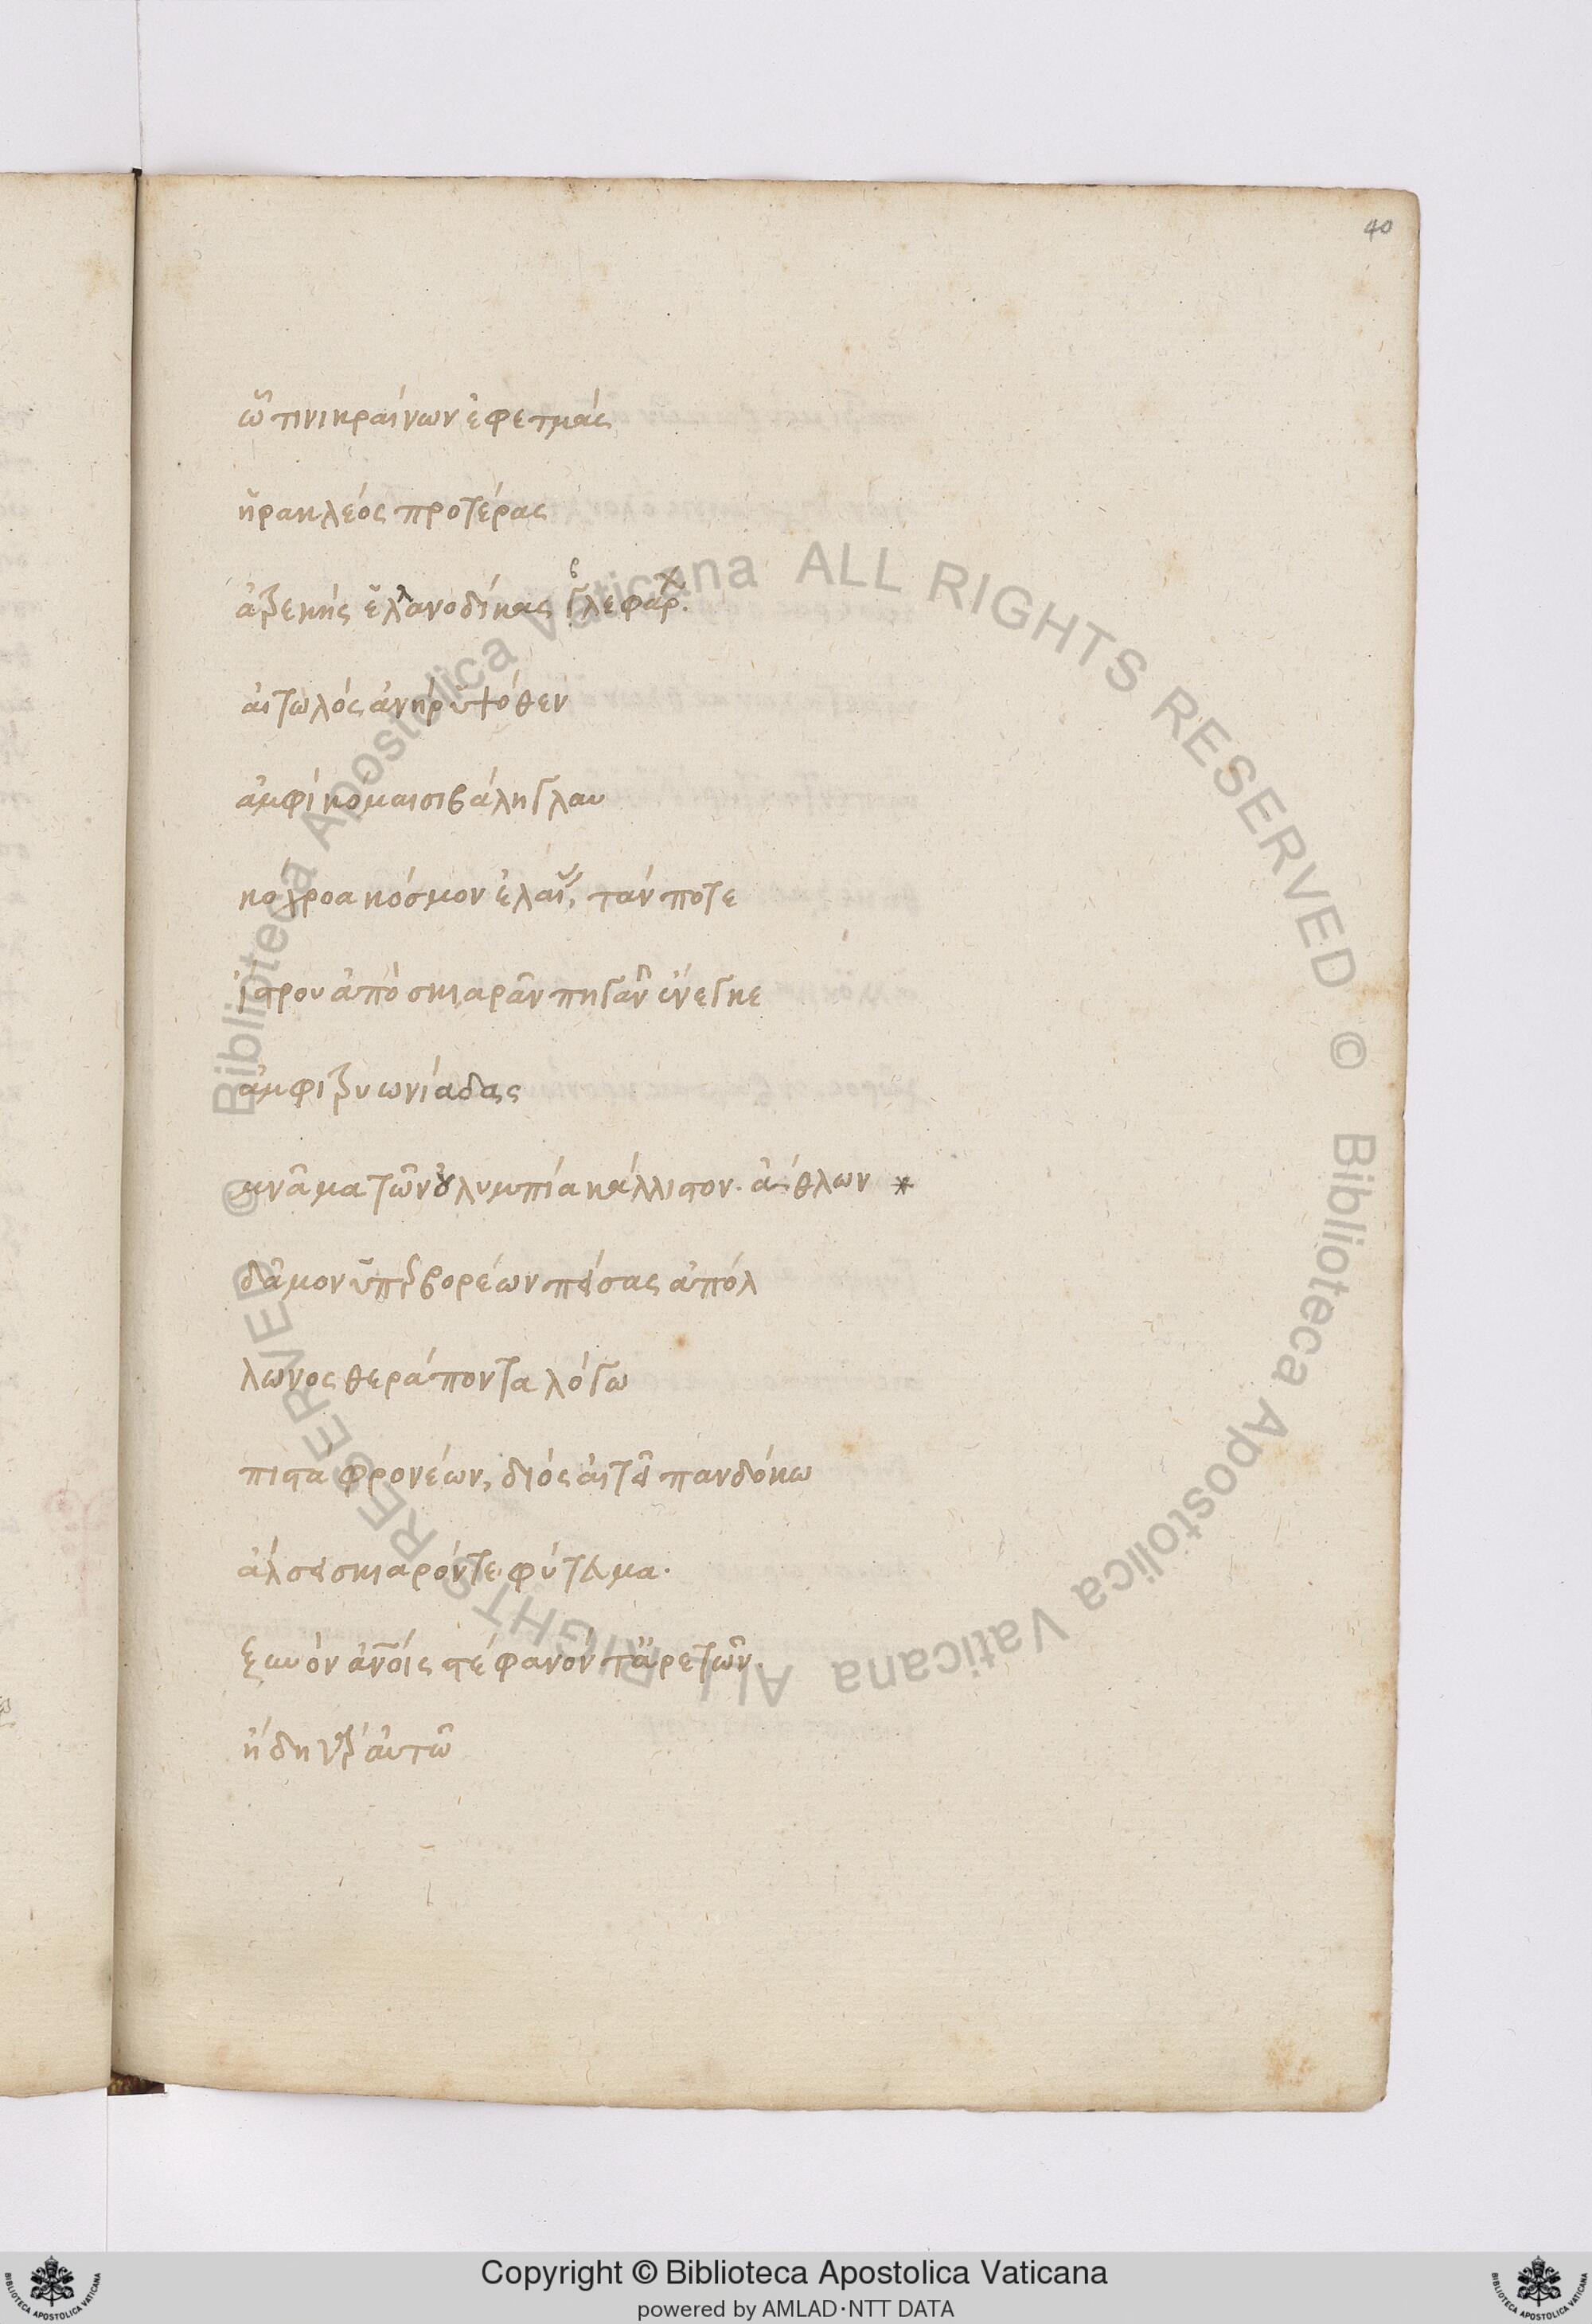 40
ὧ τινι κραίνων ἐφετμάς
ἡρακλεός προτέρας
ἀτρεκής ἑλλανοδίκας γλεφάρ.
αἰτωλός ἀνήρ ὑψόθεν
ἀμφί κόμαισι βάλη γλαυ
κόχροα κόσμον ἐλαί, τάν ποτε
ἴστρου ἀπὸ σκιαρᾶν πηγᾶν ἔνεγκε
ἀμφιτρυωνίαδας
μνᾶμα τῶν ὀλυμπία κάλλιστον ἀέθλων *
δᾶμον ὑπερβορέων πείσας ἀπόλ
λωνος θεράποντα λόγω
πιστά φρονέων, διός αἴτει πανδόκω
ἄλσει σκιαρόν τε φύτευμα.
ξυνὸν ἀνοίς στέφανόν τ' ἀρετῶν
ἤδη γὰρ αὐτῶ
© Biblioteca Apostolica Vaticana ALL RIGHTS RESERVED © Biblioteca Apostolica Vaticana ALL RIGHTS RESERVED
Copyright © Biblioteca Apostolica Vaticana
powered by AMLAD·NTT DATA
BIBLIOTECA APOSTOLICA VATICANA
BIBLIOTECA APOSTOLICA VATICANA